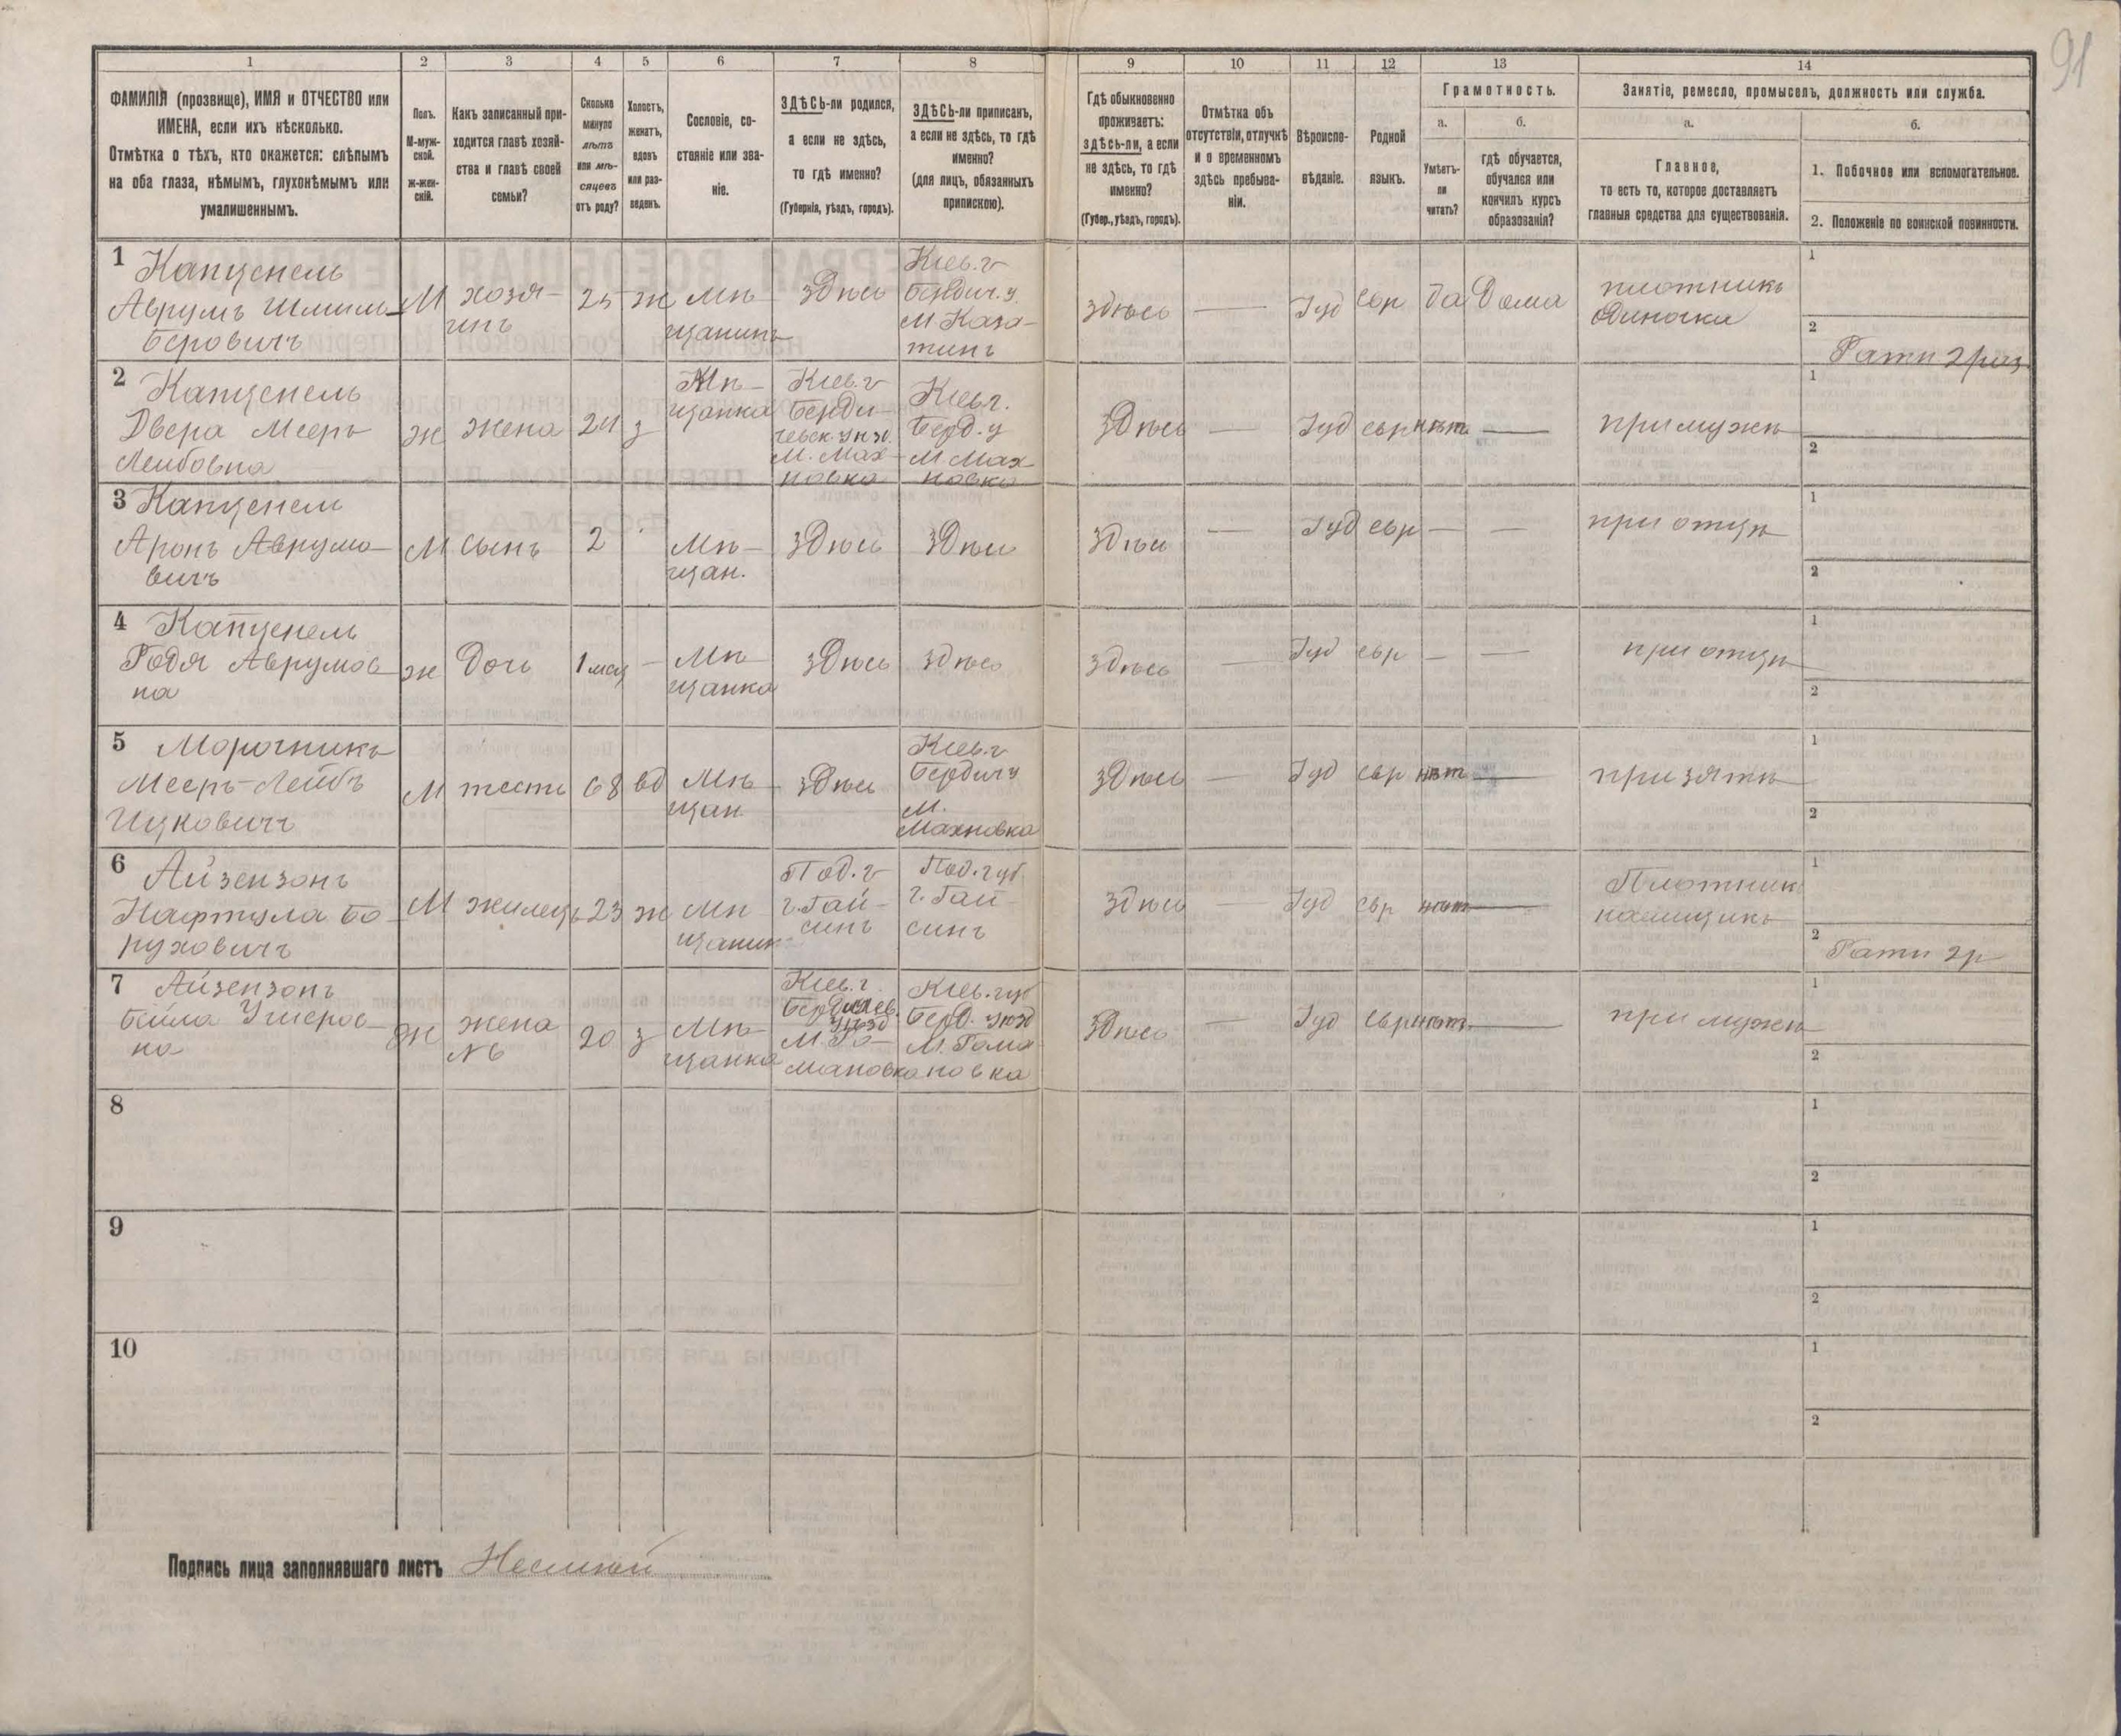 91
1
2
3
4
5
6
7
8
9
10
11
12
13
14
ФАМИЛІЯ (прозвище), ИМЯ и ОТЧЕСТВО или
ИМЕНА, если ихъ нѣсколько.
Отмѣтка о тѣхъ, кто окажется: слѣпымъ
на оба глаза, нѣмымъ, глухонѣмымъ или
умалишеннымъ.
Полъ.
М-муж-
ской.
ж-жен-
скій.
Какъ записанный при-
ходится главѣ хозяй-
ства и главѣ своей
семьи?
Сколько
минуло
лѣтъ
или мѣ-
сяцевъ
отъ роду?
Холостъ,
женатъ,
вдовъ
или раз-
веденъ.
Сословіе, со-
стояніе или зва-
ніе.
ЗДѢСЬ-ли родился,
а если не здѣсь,
то гдѣ именно?
(Губернія, уѣздъ, городъ).
ЗДѢСЬ-ли приписанъ,
а если не здѣсь, то гдѣ
именно?
(для лицъ, обязанныхъ
припискою).
Гдѣ обыкновенно
проживаетъ:
здѣсь-ли, а если
не здѣсь, то гдѣ
именно?
(Губер., уѣздъ, городъ).
Отмѣтка объ
отсутствіи, отлучкѣ
и о временномъ
здѣсь пребыва-
ніи.
Вѣроиспо-
вѣданіе.
Родной
языкъ.
Грамотность.
а.
Умѣетъ-
ли
читать?
б.
гдѣ обучается,
обучался или
кончилъ курсъ
образованія?
Занятіе, ремесло, промыселъ, должность или служба.
а.
Главное,
то есть то, которое доставляетъ
главныя средства для существованія.
б.
1. Побочное или вспомогательное.
2. Положеніе по воинской повинности.
1 Капценель
Аврумъ Шмиль-
Беровичъ
М
хозя-
инъ
25
ж
Мѣ-
щанинъ
здѣсь
Кіев. г
Бердич. у.
М Каза-
тинъ
здѣсь
—
Іуд
евр
да
Дома
плотникъ
одиночка
1
2
Ратн 2 раз
2 Капценель
Двера Меерь
Лейбовна
ж
жена
24
з
Мѣ-
щанка
Кіев. г
Берди-
чевск. уѣзд.
М. Мах-
новка
Кіев г.
Берд. у
М Мах-
новка
здѣсь
—
Іуд
евр
нѣт
—
при мужѣ
1
2
3 Капценель
Аронъ Аврумо-
вичъ
М
сынъ
2
Мѣ-
щан.
здѣсь
здѣсь
здѣсь
—
Іуд
евр
—
—
при отцѣ
1
2
4 Капценель
Родя Аврумов-
на
ж
дочь
1 мсц
—
Мѣ-
щанка
здѣсь
здѣсь
здѣсь
—
Іуд
евр
—
—
при отцѣ
1
2
5 Морочникъ
Мееръ-Лейбъ
Ицковичъ
М
тесть
68
вд
Мѣ-
щан
здѣсь
Кіев. г
Бердич у
М.
Махновка
здѣсь
—
Іуд
евр
нѣт
—
при зятѣ
1
2
6 Айзензонъ
Нафтула Бо-
руховичъ
М
жилецъ
23
ж
Мѣ
щанин
Под. г
г. Гай-
синъ
Под. губ
г. Гай-
синъ
здѣсь
—
Іуд
евр
нѣт
—
Плотник
1
2
Ратн 2 р
7 Айзензонъ
Бейла Ушеров-
на
ж
жена
№ 6
20
з
Мѣ-
щанка
Кіев. г.
Бердичев.
уѣзд
М. Ро-
мановка
Кіев. губ
Берд. уѣзд
М. Рома-
новка
здѣсь
—
Іуд
евр
нѣт
—
при мужѣ
1
2
8
1
2
9
1
2
10
1
2
Подпись лица заполнявшаго листъ